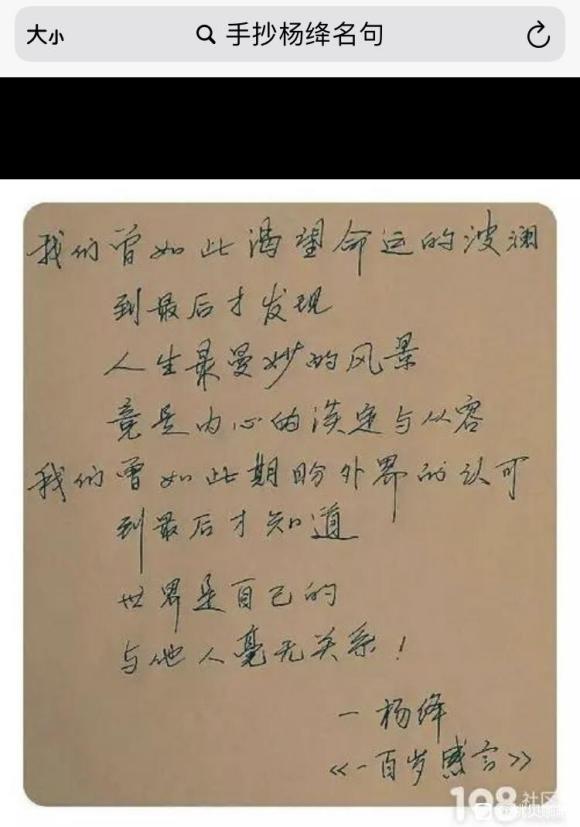 大小 手抄杨绛名句
我们曾如此渴望命运的波澜
到最后才发现
人生最曼妙的风景
竟是内心的淡定与从容
我们曾如此期盼外界的认可
到最后才知道
世界是自己的
与他人毫无关系！
一杨绛
《一百岁感言》
108社区